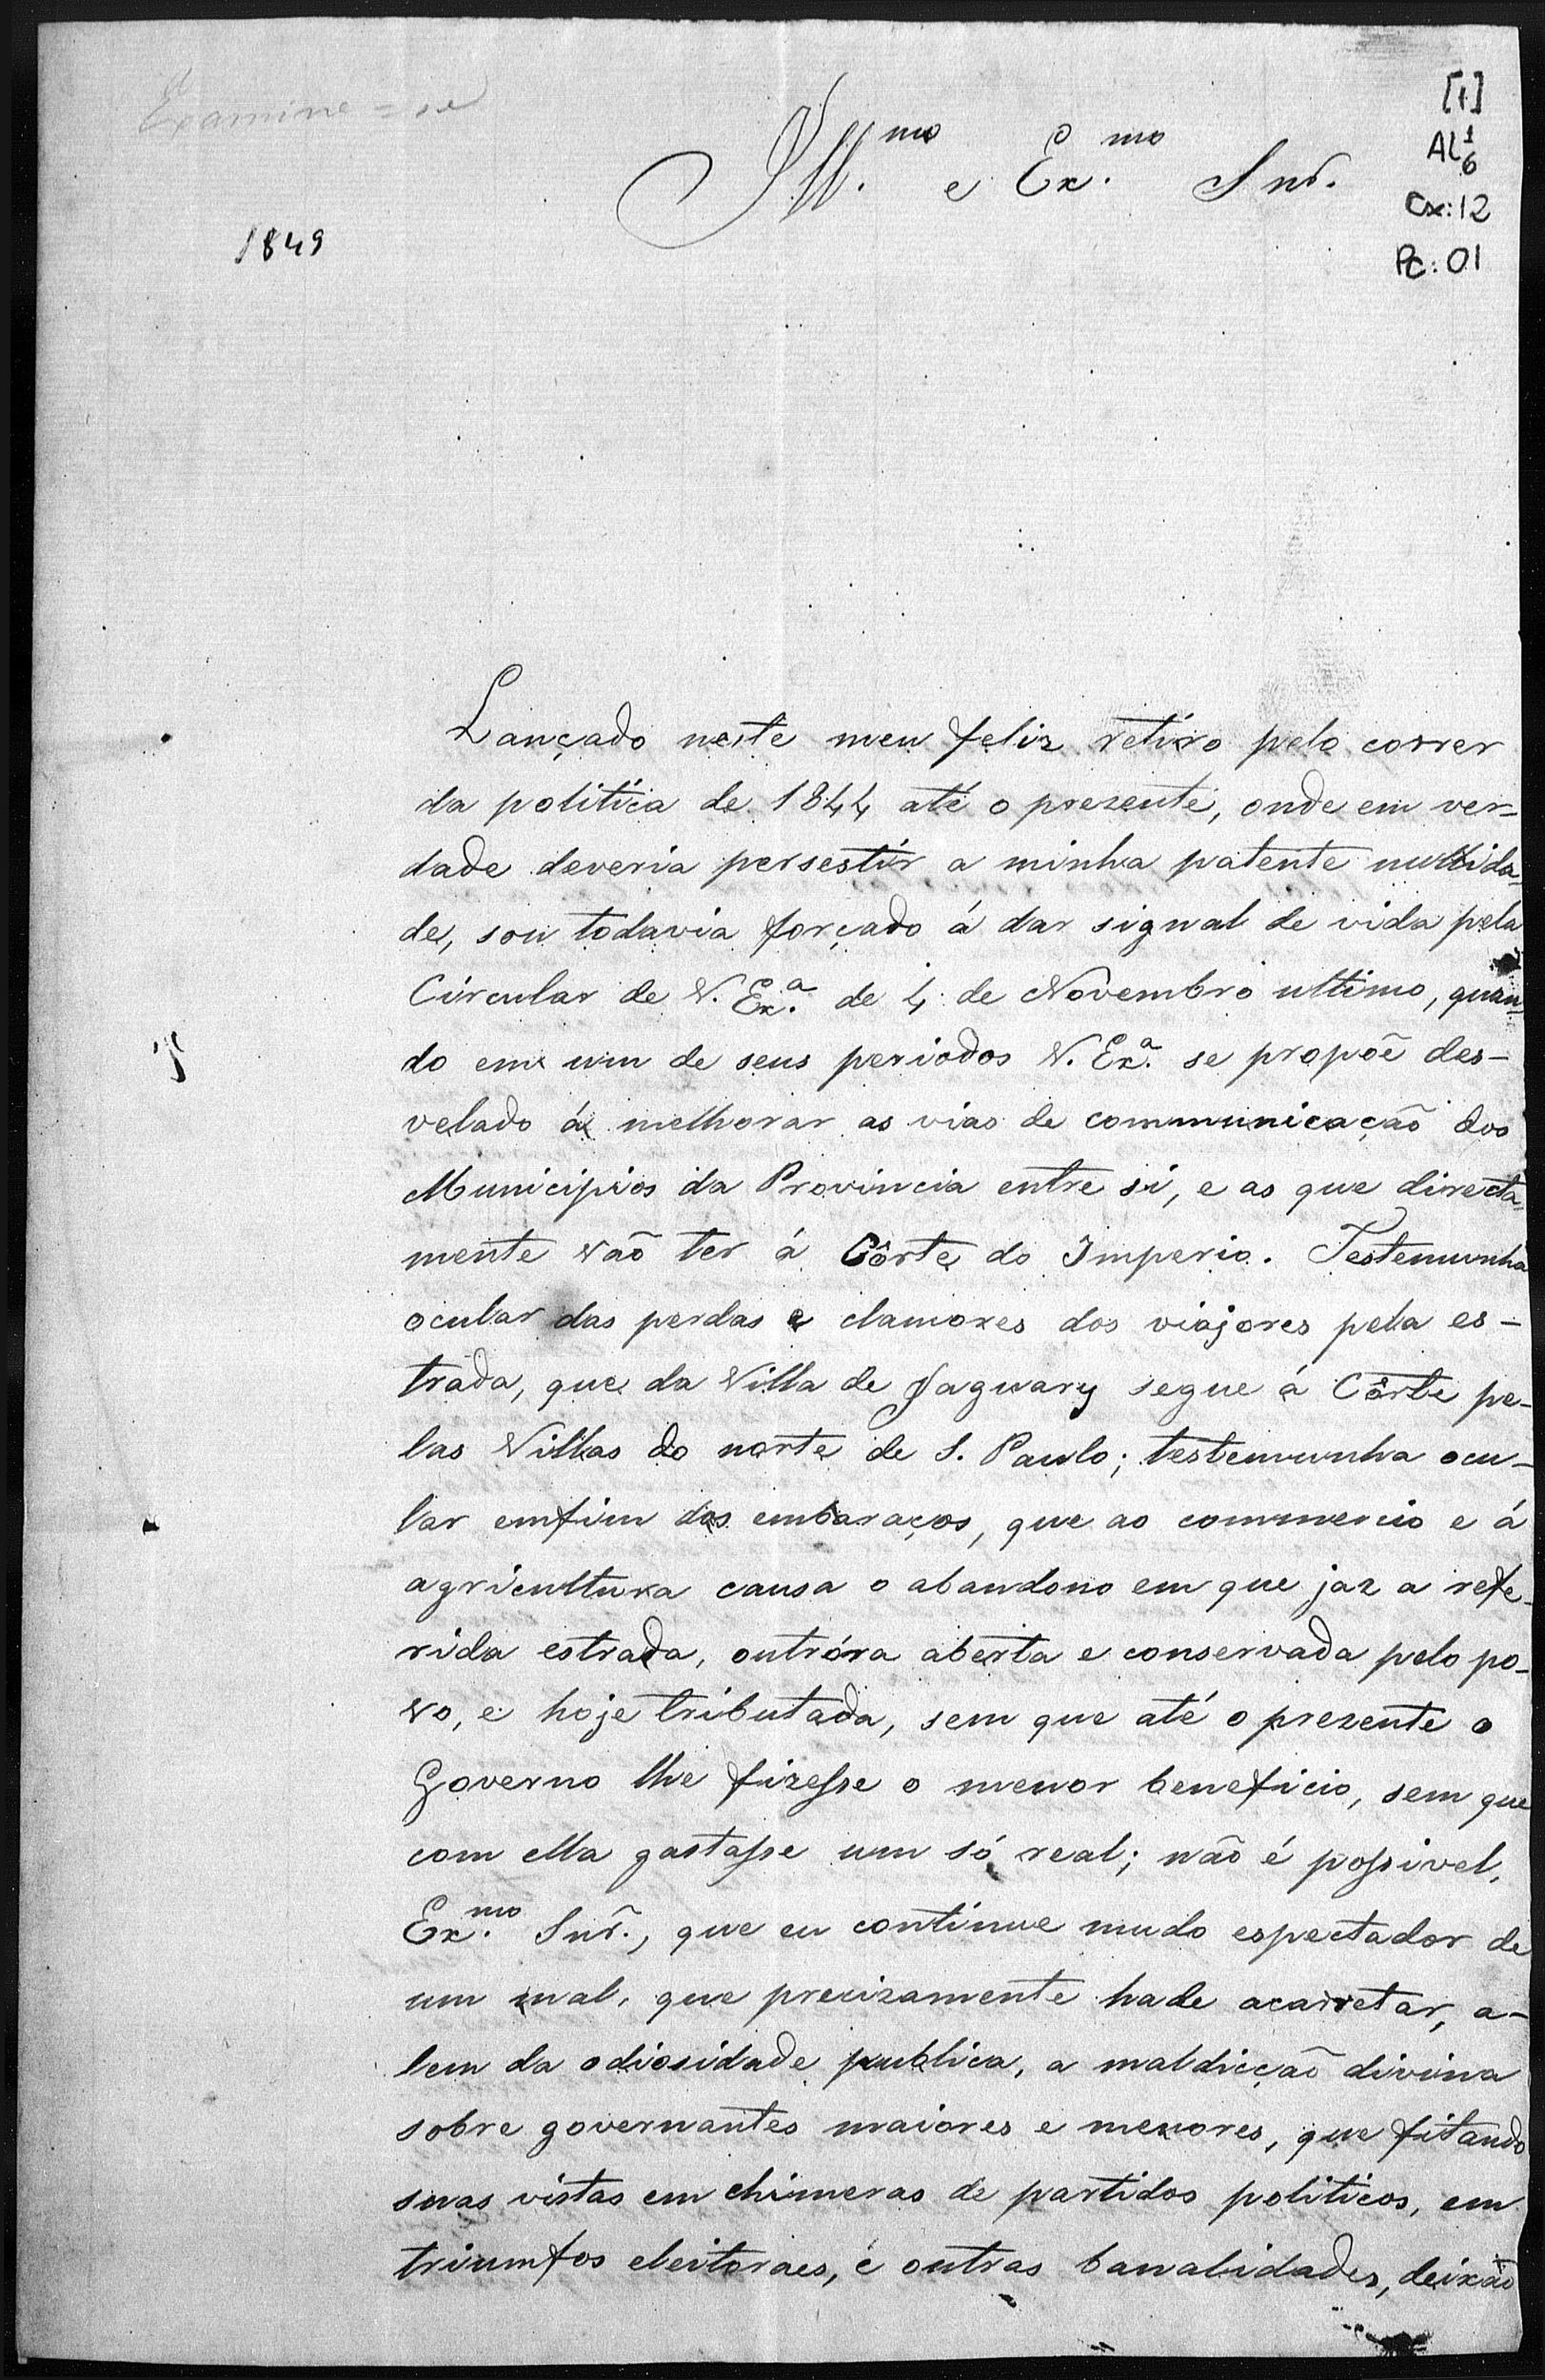 Examine=se
[1]
AL1
6
Cx:12
Pc:01
Ill.mo e Ex.mo Snr.
1849
Lançado neste meu feliz retiro pelo correr
da politica de 1844 até o prezente, onde em ver-
dade deveria persestir a minha patente nullida-
de, sou todavia forçado á dar signal de vida pela
Circular de V. Ex.a de 4 de Novembro ultimo, quan-
do em um de seus periodos V. Ex.a se propõe des-
velado á melhorar as vias de communicação dos
Municipios da Provincia entre si, e as que directa-
mente vão ter á Côrte do Imperio. Testemunha
ocular das perdas e clamores dos viajores pela es-
trada, que da Villa de Jaguary segue á Côrte pe-
las Villas do norte de S. Paulo; testemunha ocu-
lar emfim dos embaraços, que ao commercio e á
agricultura causa o abandono em que jaz a refe-
rida estrada, outróra aberta e conservada pelo po-
vo, e hoje tributada, sem que até o prezente o
Governo lhe fizesse o menor beneficio, sem que
com ella gastasse um só real; não é possivel,
Ex.mo Snr., que eu continue mudo espectador de
um mal, que precizamente hade acarretar, a-
lem da odiosidade publica, a maldicção divina
sobre governantes maiores e menores, que fitando
suas vistas em chimeras de partidos politicos, em
triumfos eleitoraes, e outras banalidades, deixão